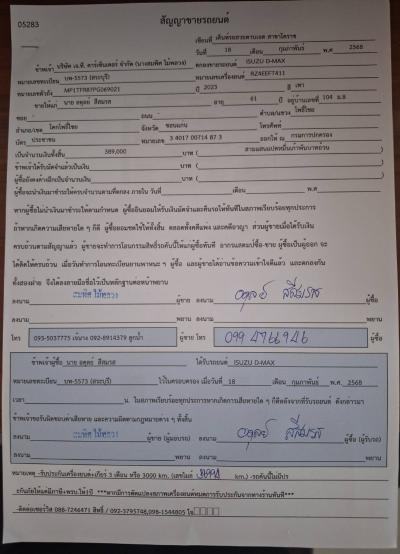 05283
สัญญาขายรถยนต์
เขียนที่ เต็นท์รถสวยตามเอส สาขาโคราช
วันที่ 18 เดือน กุมภาพันธ์ พ.ศ 2568
ข้าพเจ้า บริษัท เจ.ที. คาร์เซ็นเตอร์ จำกัด (นางสมพิศ ไม้หลวง) ตกลงขายรถยนต์ ISUZU D-MAX
หมายเลขทะเบียน บพ-5573 (สระบุรี) หมายเลขเครื่องยนต์ RZ4EEFT411
หมายเลขตัวถัง MP1TFR87PG069021 ปี 2023 สี เทา
ขายให้แก่ นาย อดุลย์ สีสมรส อายุ 61 ปี อยู่บ้านเลขที่ 104 ม.8
ซอย - ถนน - ตำบล/แขวง โพธิ์ไชย
อำเภอ/เขต โคกโพธิ์ไชย จังหวัด ขอนแก่น โทรศัพท์
บัตร ประชาชน หมายเลข 3 4017 00714 87 3 ออกให้ ณ กรมการปกครอง
เป็นจำนวนเงินทั้งสิ้น 389,000 บาท ( สามแสนแปดหมื่นเก้าพันบาทถ้วน )
ข้าพเจ้าได้รับมัดจำแล้วเป็นเงิน บาท ( )
ผู้ซื้อยังคงค้างอีกเป็นจำนวนเงิน บาท ( )
ผู้ซื้อจะนำเงินมาชำระให้ครบจำนวนตามที่ตกลง ภายใน วันที่ เดือน พ.ศ
หากผู้ซื้อไม่นำเงินมาชำระให้ตามกำหนด ผู้ซื้อยินยอมให้ริบเงินมัดจำและคืนรถให้ทันทีในสภาพเรียบร้อยทุกประการ
ถ้าหากเกิดความเสียหายใด ๆ ก็ดี ผู้ซื้อยอมชดใช้ให้ทั้งสิ้น ตลอดทั้งคดีแพ่ง และคดีอาญา ส่วนผู้ขายเมื่อได้รับเงิน
ครบถ้วนตามสัญญาแล้ว ผู้ขายจะทำการโอนกรรมสิทธิ์รถคันนี้ให้แก่ผู้ซื้อทันที อากรแสตมป์ซื้อ-ขาย ผู้ซื้อเป็นผู้ออก จะ
ได้คิดให้ครบถ้วน เมื่อวันทำการโอนทะเบียนยานพาหนะ ฯ ผู้ซื้อ และผู้ขายได้อ่านข้อความเข้าใจดีแล้ว และตกลงกัน
ทั้งสองฝ่าย จึงได้ลงลายมือชื่อไว้เป็นหลักฐานต่อหน้าพยาน
ลงนาม สมพิศ ไม้หลวง ผู้ขาย ลงนาม อดุลย์ สีสมรส ผู้ซื้อ
ลงนาม พยาน ลงนาม พยาน
โทร 093-5037775 เจ๊นาง 092-8914379 ลูกน้ำ ผู้ขาย โทร ผู้ซื้อ
ข้าพเจ้าผู้ซื้อ นาย อดุลย์ สีสมรส ได้รับรถยนต์ ISUZU D-MAX
หมายเลขทะเบียน บพ-5573 (สระบุรี) ไว้ในครอบครอง เมื่อวันที่ 18 เดือน กุมภาพันธ์ พ.ศ 2568
เวลา น. ในสภาพเรียบร้อยทุกประการหากเกิดการเสียหายใด ๆ ก็ดีหลังจากที่รับรถยนต์ ดังกล่าวมา
ข้าพเจ้าขอรับผิดชอบค่าเสียหาย และความผิดตามกฎหมายต่าง ๆ ทั้งสิ้น
ลงนาม สมพิศ ไม้หลวง ผู้ขาย (ผู้มอบรถ) ลงนาม อดุลย์ สีสมรส ผู้ซื้อ (ผู้รับรถ)
ลงนาม พยาน ลงนาม พยาน
หมายเหตุ -รับประกันเครื่องยนต์+เกียร์ 3 เดือน หรือ 3000 กม. (เลขไมล์ km.) -รถคันนี้ไม่มีประ
ะกันภัยให้แต่มีภาษี+พรบ.ให้1ปี ***หากมีการดัดแปลงสภาพเครื่องยนต์หมดการรับประกันจากทางร้านทันที***
-ติดต่อเซอร์วิส 088-7246471 สิทธิ์ / 092-3795748,098-1544805 โ